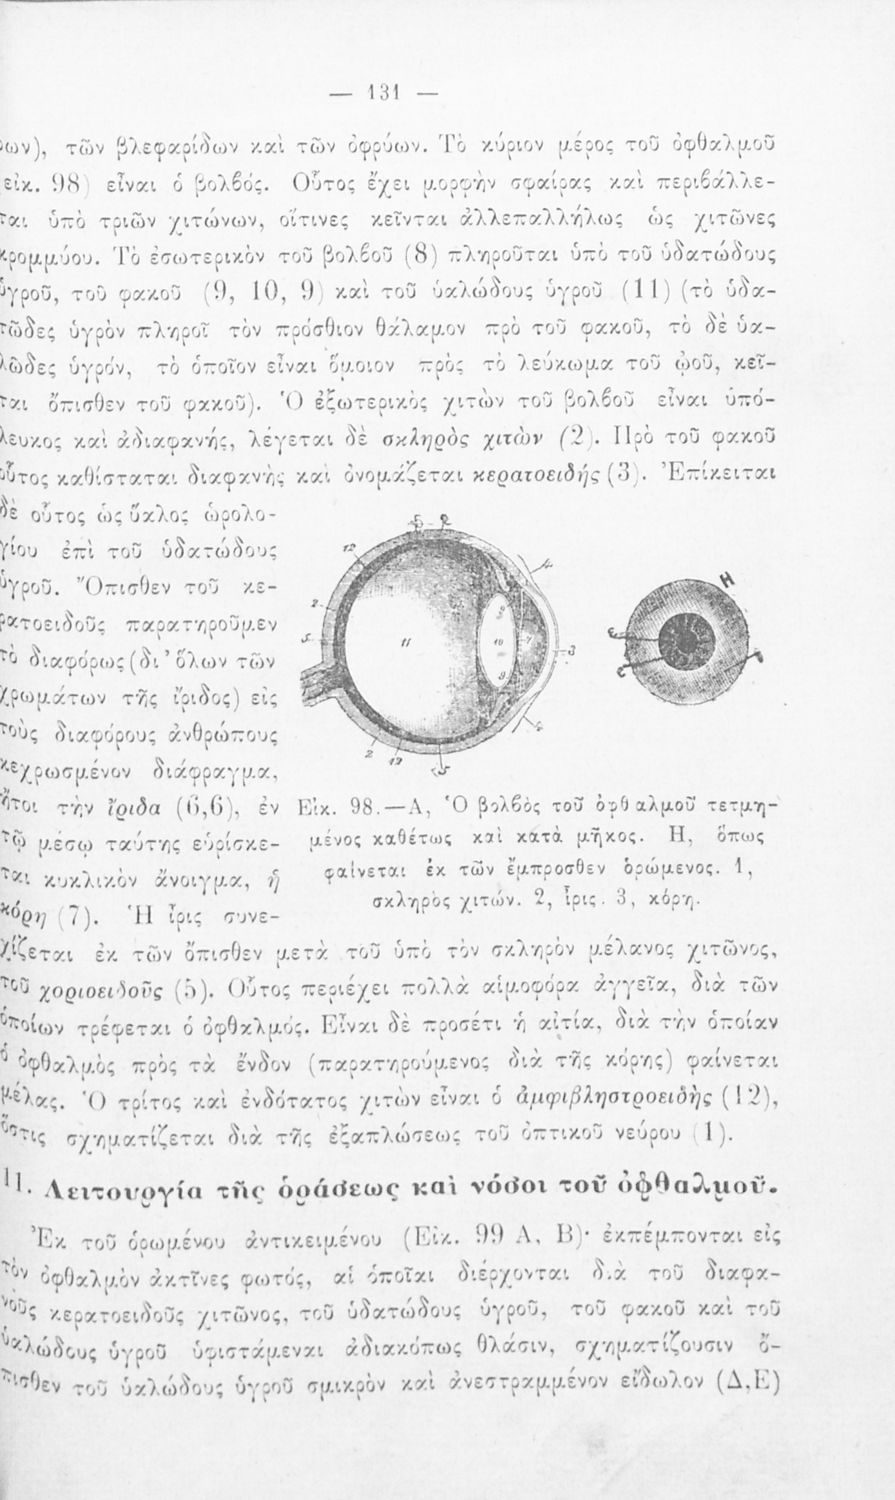 — 131 —
ων), τῶν βλεφαρίδων καὶ τῶν ὀφρύων. Τὸ κύριον μέρος τοῦ ὀφθαλμοῦ
εἰκ. 98) εἶναι ὁ βολβός. Οὗτος ἔχει μορφὴν σφαίρας καὶ περιβάλλε-
ται ὑπὸ τριῶν χιτώνων, οἵτινες κεῖνται ἀλλεπαλλήλως ὡς χιτῶνες
κρομμύου. Τὸ ἐσωτερικὸν τοῦ βολβοῦ (8) πληροῦται ὑπὸ τοῦ ὑδατώδους
ὑγροῦ, τοῦ φακοῦ (9, 10, 9) καὶ τοῦ ὑαλώδους ὑγροῦ (11) (τὸ ὑδα-
τῶδες ὑγρὸν πληροῖ τὸν πρόσθιον θάλαμον πρὸ τοῦ φακοῦ, τὸ δὲ ὑα-
λῶδες ὑγρόν, τὸ ὁποῖον εἶναι ὅμοιον πρὸς τὸ λεύκωμα τοῦ ᾠοῦ, κεῖ-
ται ὄπισθεν τοῦ φακοῦ). Ὁ ἐξωτερικὸς χιτὼν τοῦ βολβοῦ εἶναι ὑπό-
λευκος καὶ ἀδιαφανής, λέγεται δὲ σκληρὸς χιτὼν (2). Πρὸ τοῦ φακοῦ
οὗτος καθίσταται διαφανὴς καὶ ὀνομάζεται κερατοειδής (3). Ἐπίκειται
δὲ οὗτος ὡς ὕαλος ὡρολο-
γίου ἐπὶ τοῦ ὑδατώδους
ὑγροῦ. Ὄπισθεν τοῦ κε-
ρατοειδοῦς παρατηροῦμεν
τὸ διαφόρως (δι' ὅλων τῶν
χρωμάτων τῆς ἴριδος) εἰς
τοὺς διαφόρους ἀνθρώπους
κεχρωσμένον διάφραγμα,
ἤτοι τὴν ἴριδα (6,6), ἐν
τῷ μέσῳ ταύτης εὑρίσκε-
ται κυκλικὸν ἄνοιγμα, ἡ
κόρη (7). Ἡ ἶρις συνε-
Εἰκ. 98.—Α, Ὁ βολβὸς τοῦ ὀφθαλμοῦ τετμη-
μένος καθέτως καὶ κατὰ μῆκος. Η, ὅπως
φαίνεται ἐκ τῶν ἔμπροσθεν ὁρώμενος. 1,
σκληρὸς χιτών. 2, ἶρις. 3, κόρη.
χίζεται ἐκ τῶν ὄπισθεν μετὰ τοῦ ὑπὸ τὸν σκληρὸν μέλανος χιτῶνος,
τοῦ χοριοειδοῦς (5). Οὗτος περιέχει πολλὰ αἱμοφόρα ἀγγεῖα, διὰ τῶν
ὁποίων τρέφεται ὁ ὀφθαλμός. Εἶναι δὲ προσέτι ἡ αἰτία, διὰ τὴν ὁποίαν
ὁ ὀφθαλμὸς πρὸς τὰ ἔνδον (παρατηρούμενος διὰ τῆς κόρης) φαίνεται
μέλας. Ὁ τρίτος καὶ ἐνδότατος χιτὼν εἶναι ὁ ἀμφιβληστροειδὴς (12),
ὅστις σχηματίζεται διὰ τῆς ἐξαπλώσεως τοῦ ὀπτικοῦ νεύρου (1).
11. Λειτουργία τῆς ὁράσεως καὶ νόσοι τοῦ ὀφθαλμοῦ.
Ἐκ τοῦ ὁρωμένου ἀντικειμένου (Εἰκ. 99 Α, Β)· ἐκπέμπονται εἰς
τὸν ὀφθαλμὸν ἀκτῖνες φωτός, αἱ ὁποῖαι διέρχονται διὰ τοῦ διαφα-
νοῦς κερατοειδοῦς χιτῶνος, τοῦ ὑδατώδους ὑγροῦ, τοῦ φακοῦ καὶ τοῦ
ὑαλώδους ὑγροῦ ὑφιστάμεναι ἀδιακόπως θλάσιν, σχηματίζουσιν ὄ-
πισθεν τοῦ ὑαλώδους ὑγροῦ σμικρὸν καὶ ἀνεστραμμένον εἴδωλον (Δ,Ε)